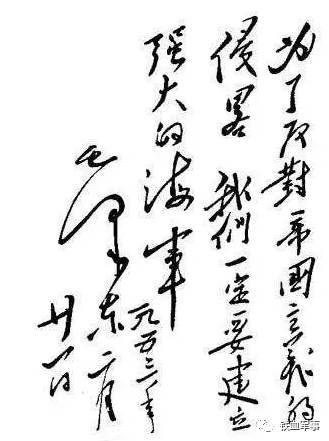 为了反對帝國主義的
侵略 我們一定要建立
强大的海軍 一九五三年
毛澤东 二月
廿一日
铁血军事